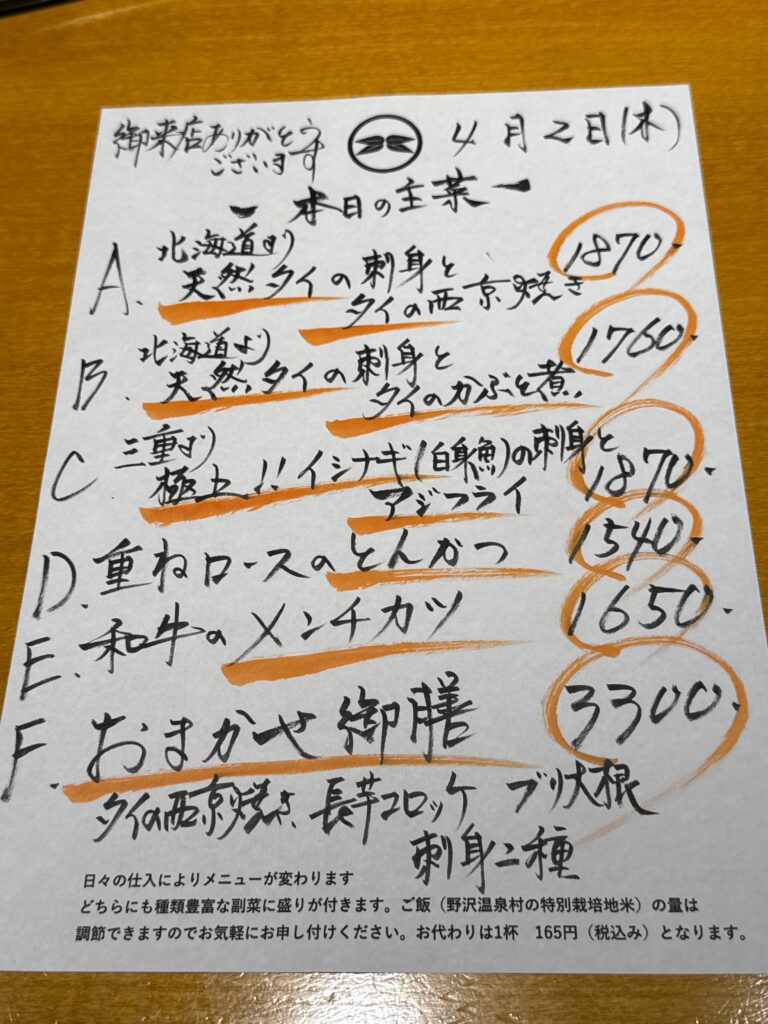 御来店ありがとう
ございます
4月2日(木)
ー本日の主菜ー
A. 北海道より
天然タイの刺身と
タイの西京焼き
1870.
B. 北海道より
天然タイの刺身と
タイのかぶと煮
1760.
C 三重より
極上!!イシナギ(白身魚)の刺身と
アジフライ
1870.
D. 重ねロースのとんかつ 1540.
E. 和牛のメンチカツ 1650.
F. おまかせ御膳 3300.
タイの西京焼き 長芋コロッケ ブリ大根
刺身二種
日々の仕入によりメニューが変わります
どちらにも種類豊富な副菜に盛りが付きます。ご飯(野沢温泉村の特別栽培地米)の量は
調節できますのでお気軽にお申し付けください。お代わりは1杯 165円(税込み)となります。